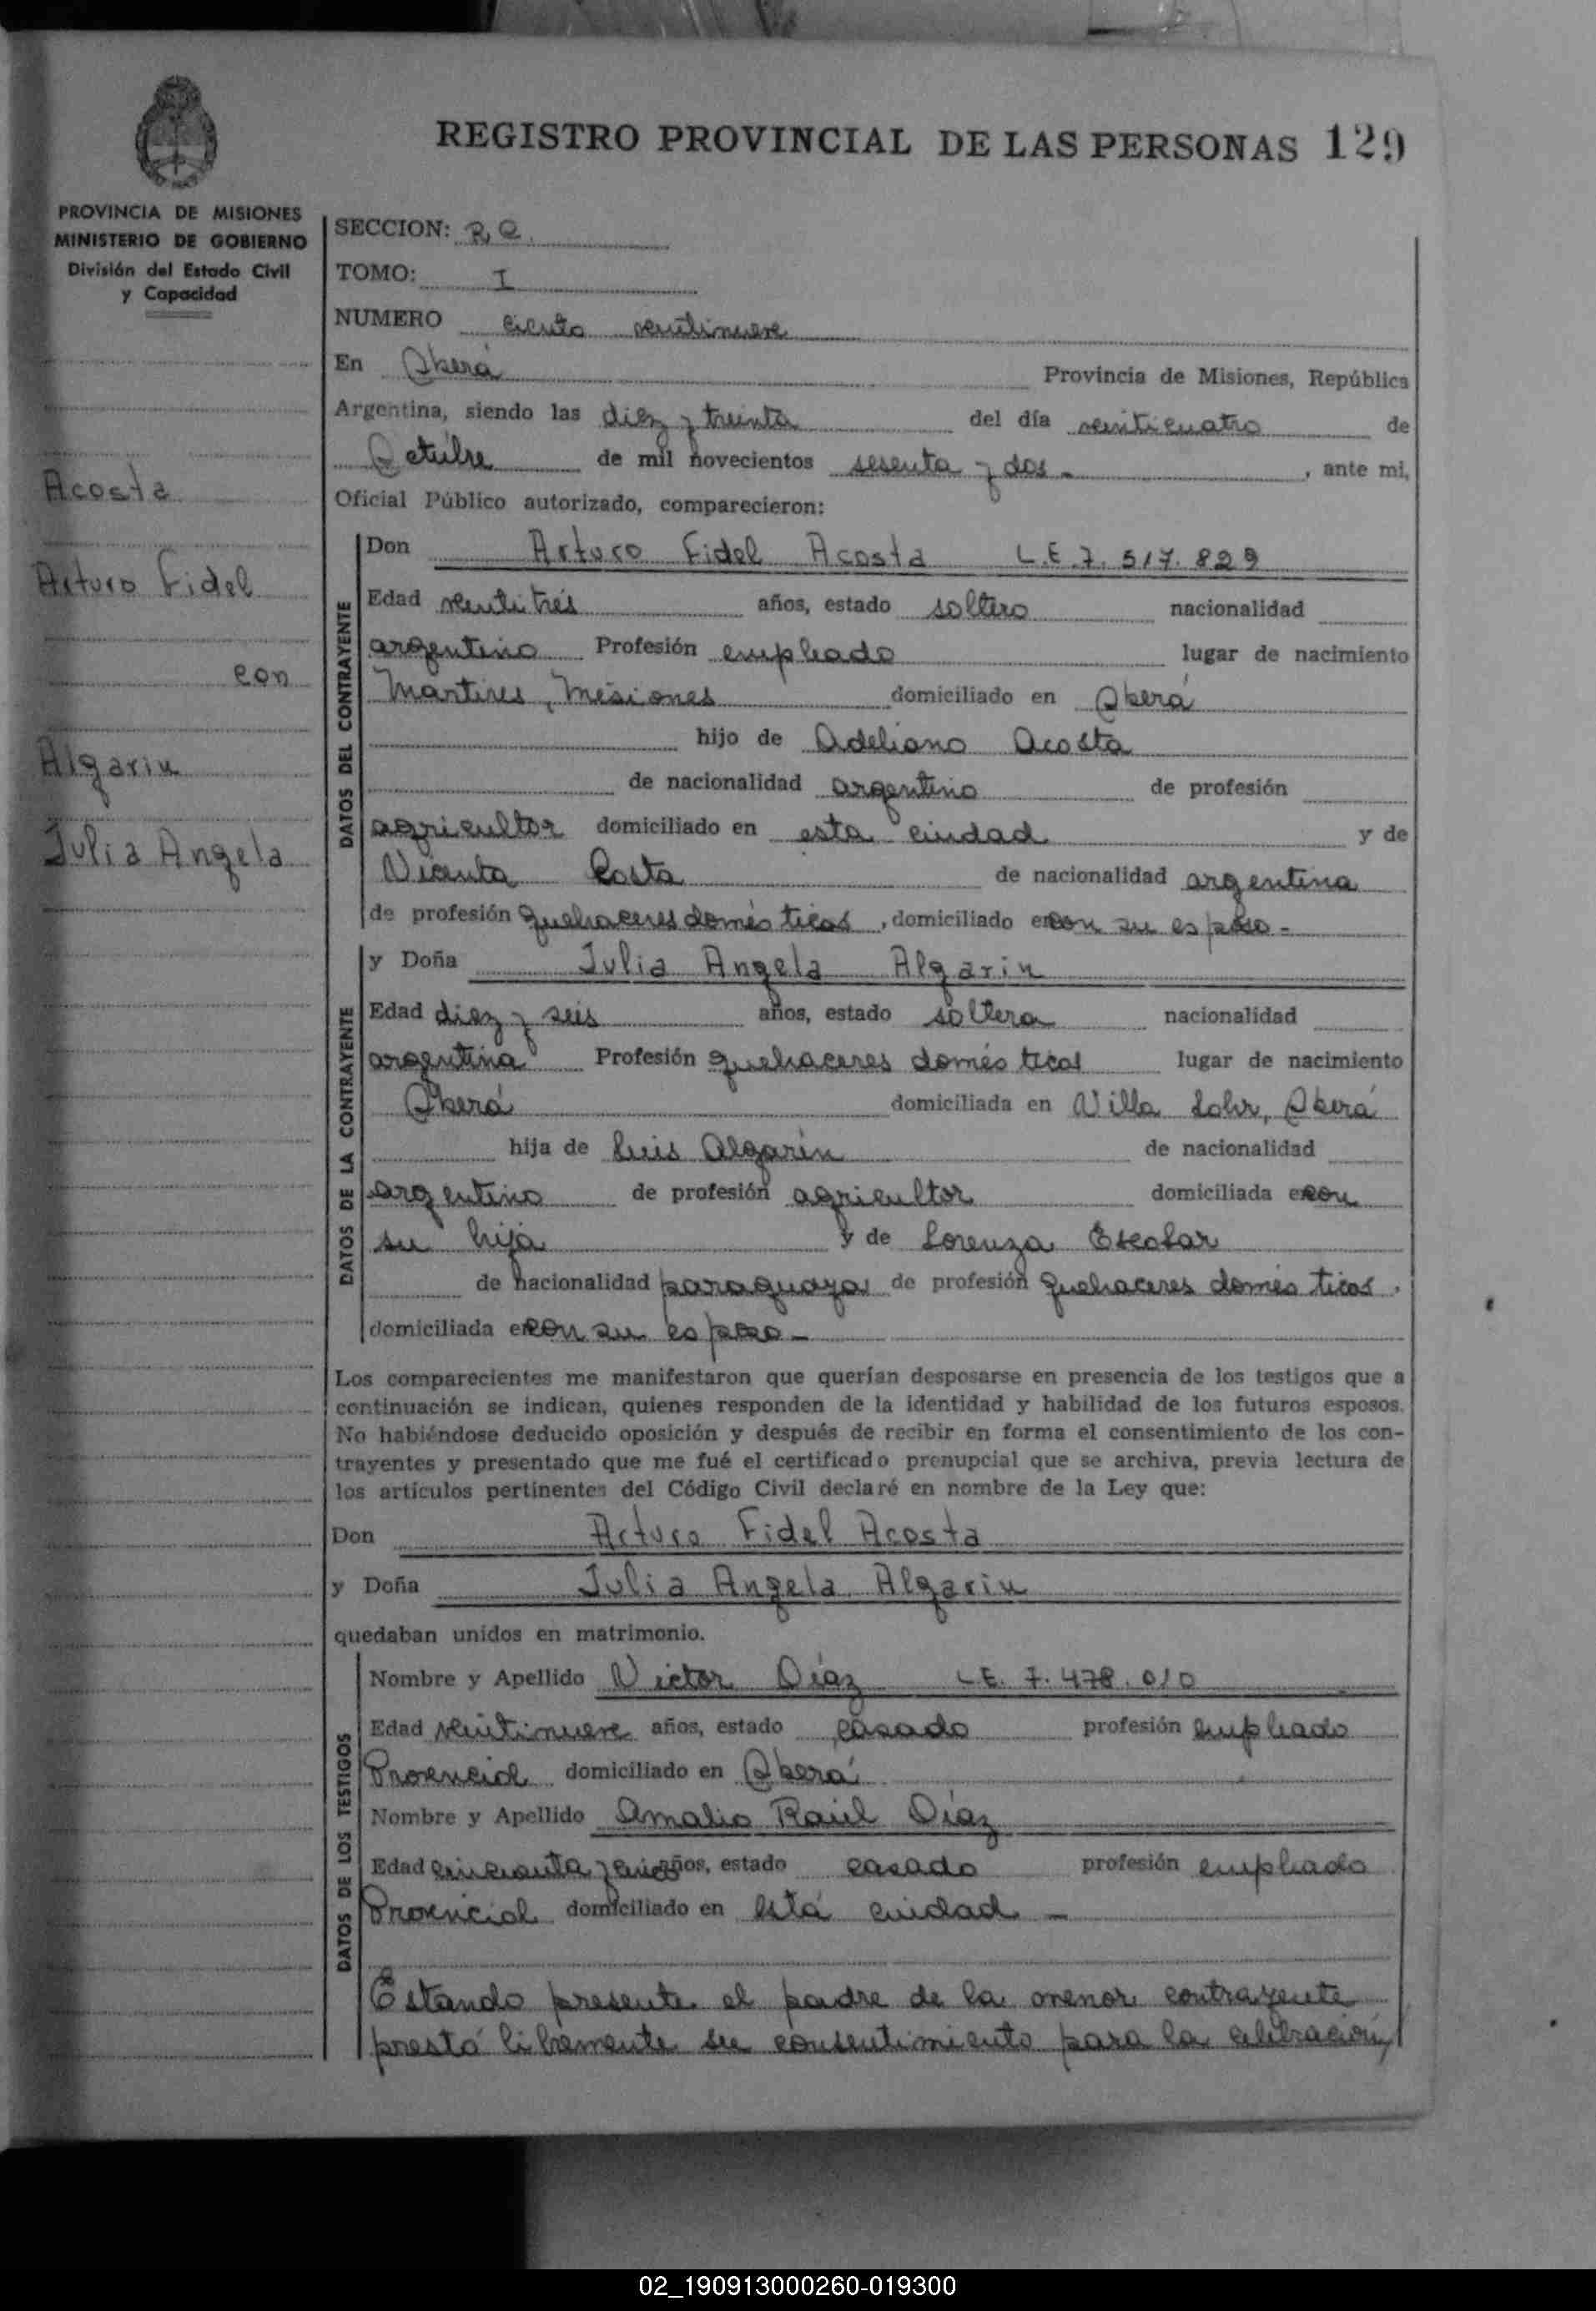 REGISTRO PROVINCIAL DE LAS PERSONAS 129
PROVINCIA DE MISIONES
MINISTERIO DE GOBIERNO
División del Estado Civil
y Capacidad
Acosta
Arturo Fidel
con
Algarin
Julia Angela
SECCION: R, Q.
TOMO: I
NUMERO ciento veintinueve
En Oberá Provincia de Misiones, República
Argentina, siendo las diez y treinta del día veinticuatro de
Octubre de mil novecientos sesenta y dos - , ante mi,
Oficial Público autorizado, comparecieron:
DATOS DEL CONTRAYENTE
Don Arturo Fidel Acosta L.E. 7. 517. 829
Edad veinti trés años, estado soltero nacionalidad
argentino Profesión empleado lugar de nacimiento
Martires, Misiones domiciliado en Oberá
hijo de Adeliano Acosta
de nacionalidad argentino de profesión
agricultor domiciliado en esta ciudad y de
Vicenta Costa de nacionalidad argentina
de profesión quehaceres domésticos , domiciliado en con su esposo -
DATOS DE LA CONTRAYENTE
y Doña Julia Angela Algarin
Edad diez y seis años, estado soltera nacionalidad
argentina Profesión quehaceres domésticos lugar de nacimiento
Oberá domiciliada en Villa Lohr, Oberá
hija de Luis Algarin de nacionalidad
argentino de profesión agricultor domiciliada en con
su hija y de Lorenza Escobar
de nacionalidad paraguaya de profesión quehaceres domésticos .
domiciliada en con su esposo -
Los comparecientes me manifestaron que querían desposarse en presencia de los testigos que a
continuación se indican, quienes responden de la identidad y habilidad de los futuros esposos.
No habiéndose deducido oposición y después de recibir en forma el consentimiento de los con-
trayentes y presentado que me fué el certificado prenupcial que se archiva, previa lectura de
los artículos pertinentes del Código Civil declaré en nombre de la Ley que:
Don Arturo Fidel Acosta
y Doña Julia Angela Algarin
quedaban unidos en matrimonio.
DATOS DE LOS TESTIGOS
Nombre y Apellido Victor Díaz L.E. 7. 478. 010
Edad veintinueve años, estado casado profesión empleado
Provincial domiciliado en Oberá
Nombre y Apellido Amalio Raúl Díaz
Edad cincuenta y cinco años, estado casado profesión empleado
Provincial domiciliado en esta ciudad -
Estando presente el padre de la menor contrayente
prestó libremente su consentimiento para la celebración
02_190913000260-019300